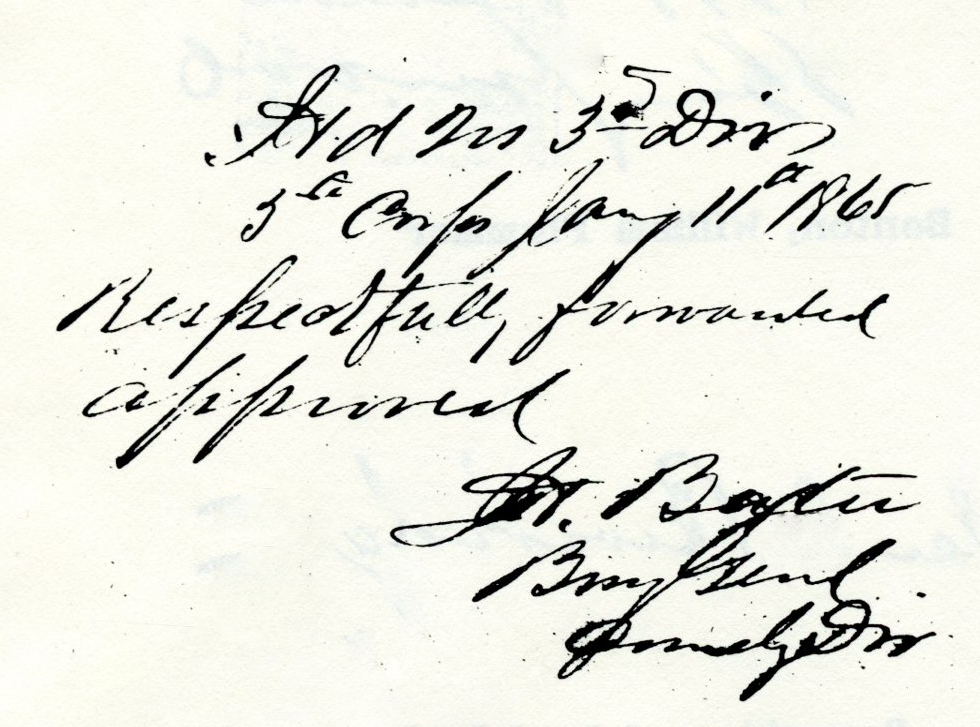 Hd Qrs 3rd Div
5th Corps Jany 11th 1865
Respectfully forwarded
approved
H. Baxter
Brig Genl
Comdg Div